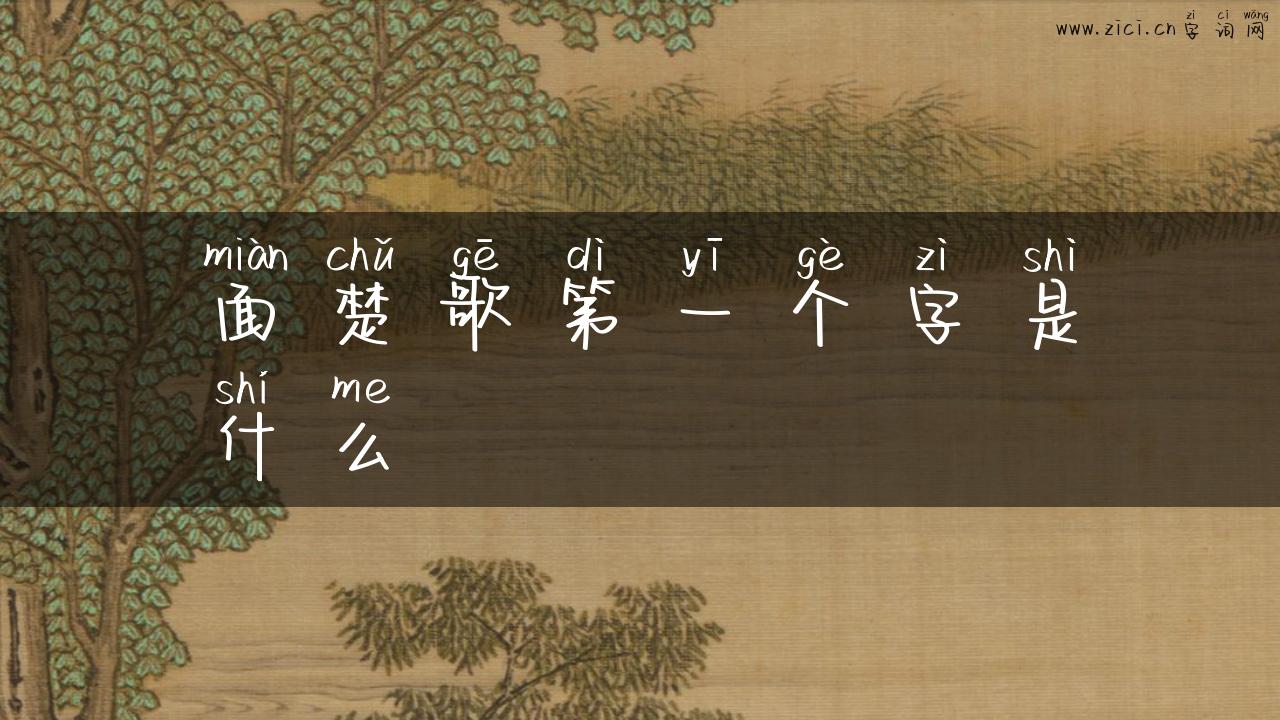 zì cí wǎng
www.zici.cn 字词网
miàn chǔ gē dì yī gè zì shì
面楚歌第一个字是
shí me
什么